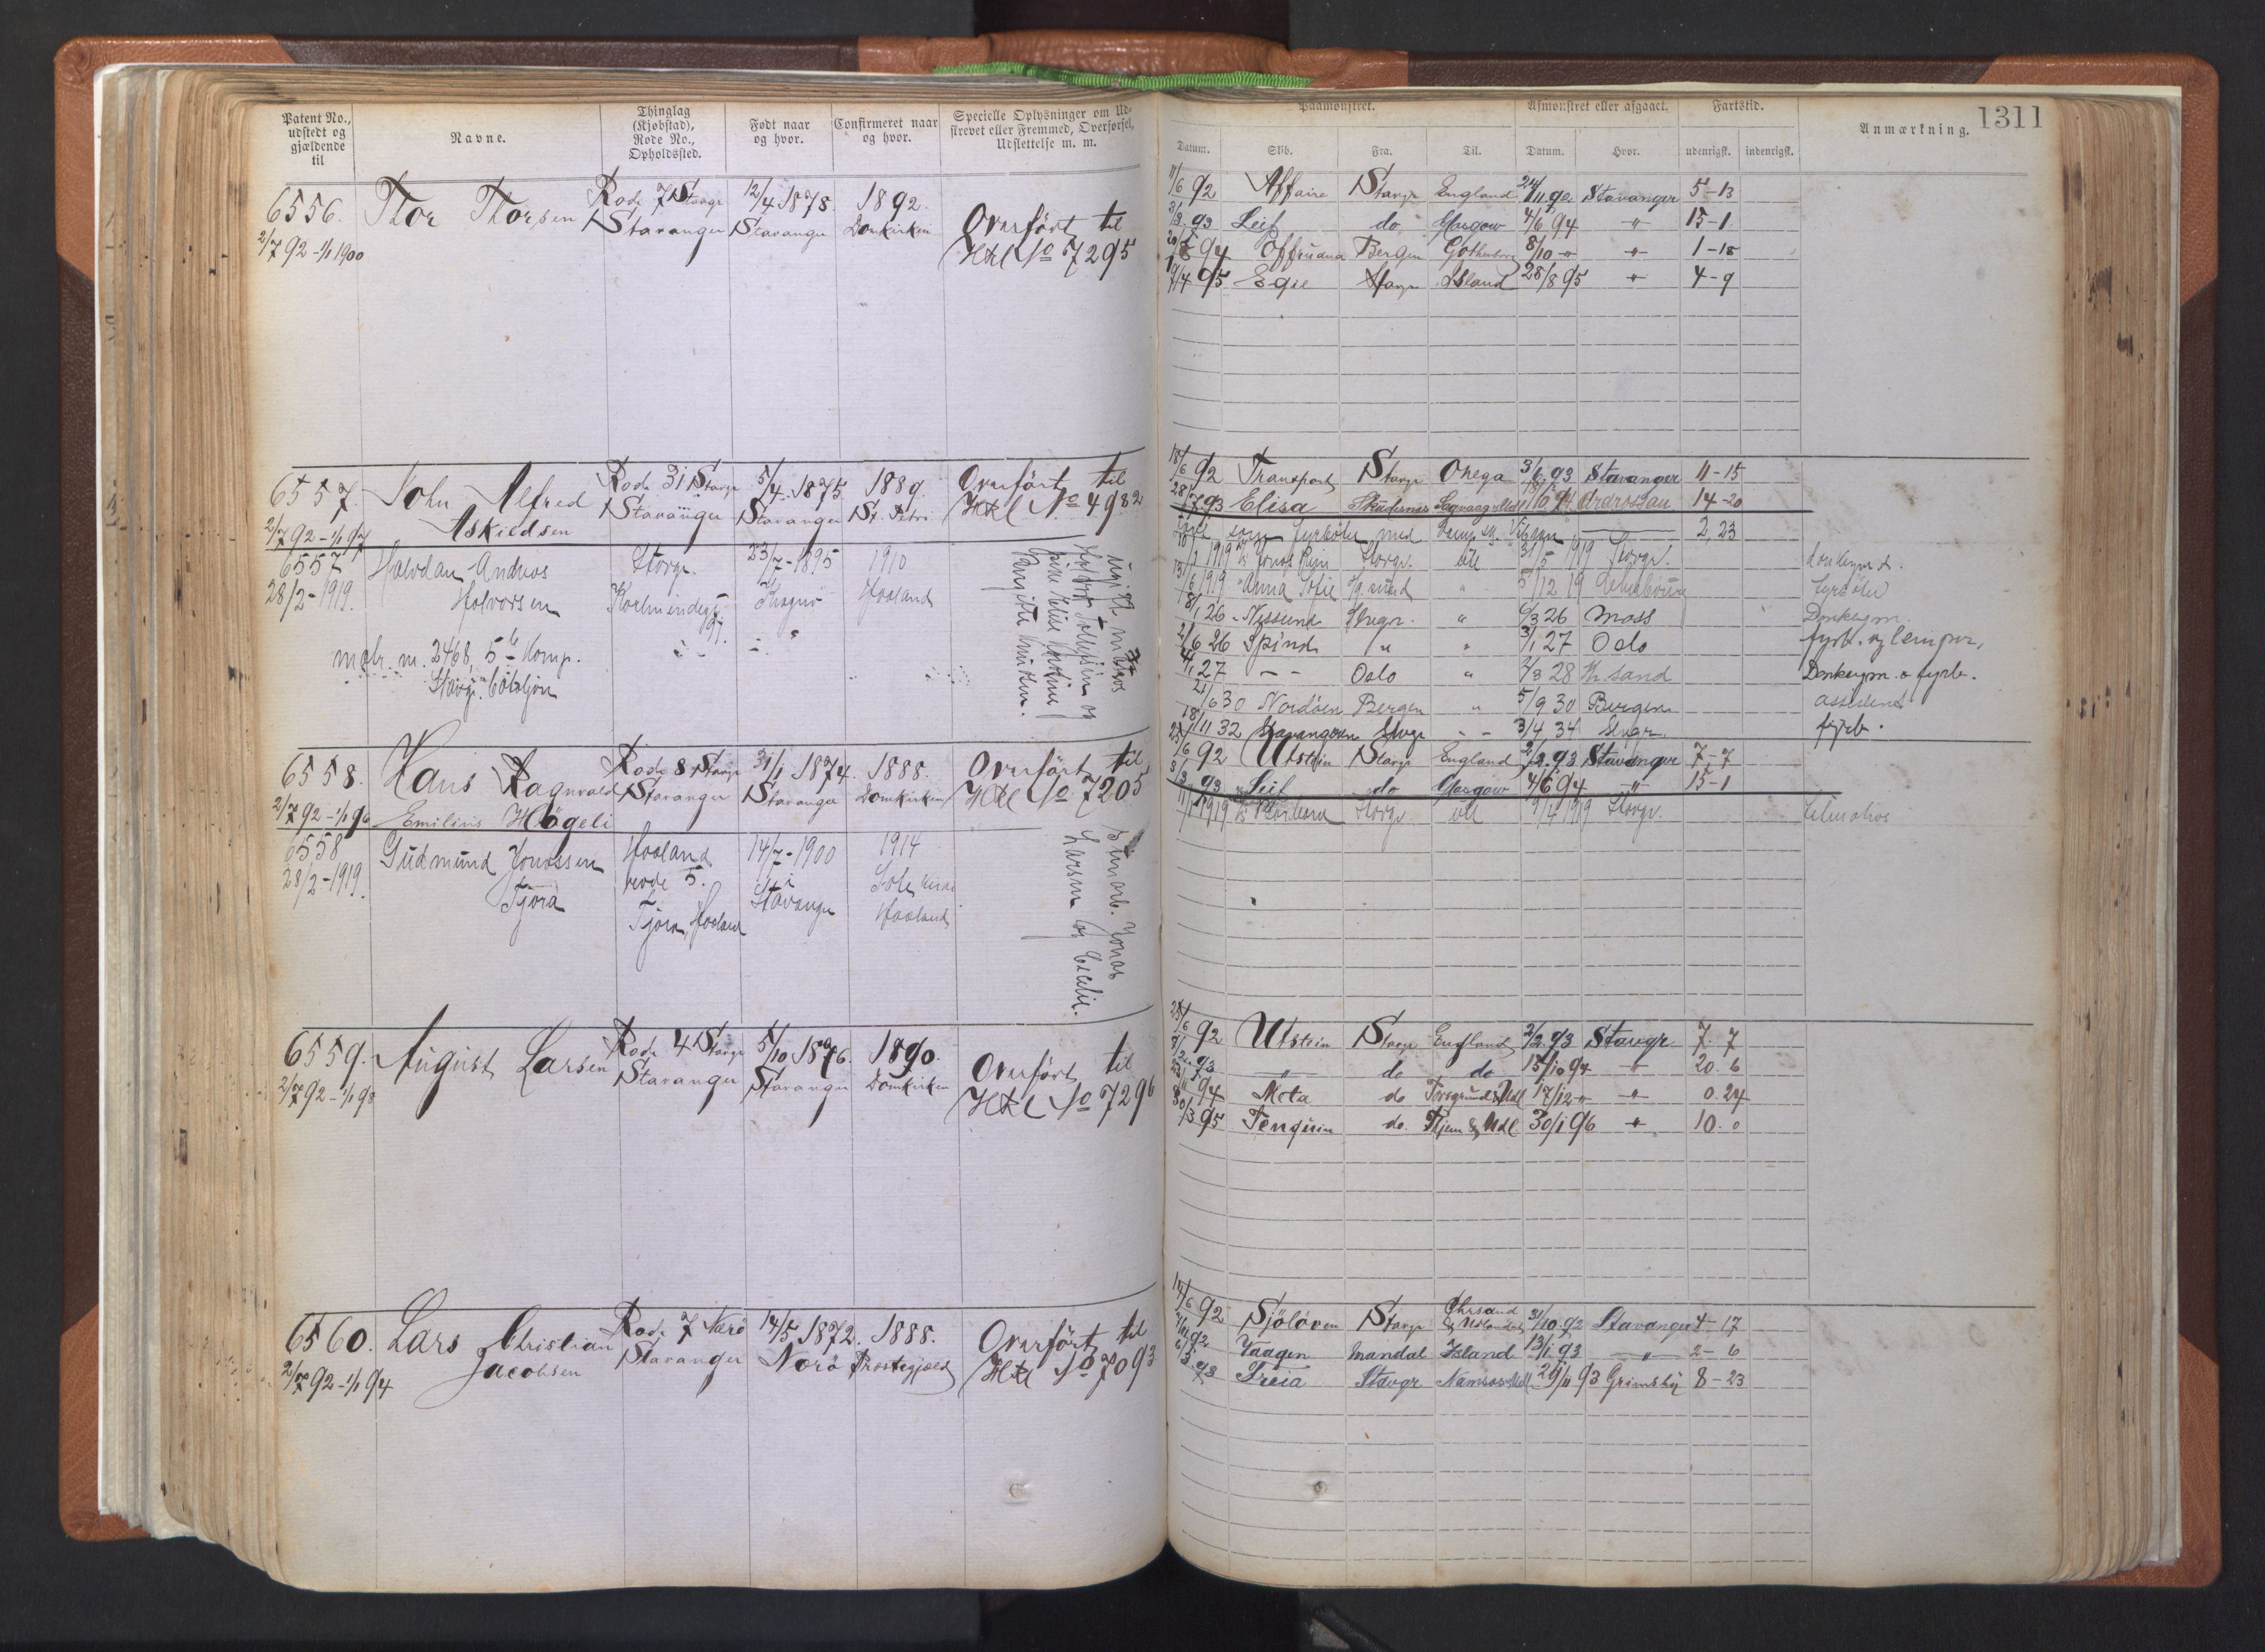 Patent No., udstedt og gjældende til
Navne.
Thinglag (Kjøbstad), Rode No., Opholdssted.
Født naar og hvor.
Confirmeret naar og hvor.
Specielle Oplysninger om Udskrevet eller Fremmed, Overførsel, Udslettelse m. m.
6556. Thor Thorsen Rode 7 Stavgr 12/4 1878. 1892.
2/7 92 - 1/1 1900 Stavanger Stavanger Domkirken Overført til
HRl No 7295
6557. John Alfred Rode 31 Stavgr 5/4 1875. 1889. Overført til
2/7 92 - 1/1 97 Askildsen Stavanger Stavanger St. Petri HRl No 4982
6557 Halvdan Andreas Stavgr. 23/7 - 1895 1910
28/2 - 1919. Halvorsen Haaland
matr. m. 2468, 5te Komp.
6558. Hans Ragnvald Rode 8 Stavgr 31/1 1874. 1888. Overført til
2/7 92 - 1/1 96 Emilius Högeli Stavanger Stavanger Domkirken HRl No 7205
6558 Gudmund Jonassen Haaland 14/7 - 1900 1914
28/2 - 1919. Tjora rode 5. i Stavanger Sole
Tjora, Haaland Haaland
Larsen og Cecilie.
6559. August Larsen Rode 4 Stavgr 5/10 1876. 1890. Overført til
2/7 92 - 1/1 98 Stavanger Stavanger Domkirken HRl No 7296
6560. Lars Christian Rode 7 Nærö 14/5 1872. 1888. Overført til
2/7 92 - 1/1 94 Jacobsen Stavanger Nærö Præstegjæld HRl No 7093
1311
Paamønstret. Afmønstret eller afgaaet. Fartstid. Anmærkning.
Datum. Skib. Fra. Til. Datum. Hvor. udenrigsk. indenrigsk.
11/6 92 Affaire Stavgr England 24/11 92 Stavanger 5-13
3/3 93 Leif do Glasgow 4/6 94 " 15-1
94 Bergen Gothenborg 8/10 " " 1-18
19/4 95 Egil Stavgr Island 28/8 95 " 4-9
18/6 92 Transport Stavgr Onega 3/6 93 Stavanger 11-15
28/7 93 Elisa Skudesnes Ardrossan 14-20
som fyrböter med 2, 23
1919 Stavgr. utl 31/5 1919 Stavgr. donkeymd.
1919 Anna Sofie 5/12 19 fyrböter
18/1 26 Nyssund Stvgr. " 6/3 26 Moss Donkeym.
2/6 26 Spind " " 3/1 27 Oslo fyrb. og lemper,
4/1 27 - - Oslo " 2/3 28 Kr.sand Donkeym. o fyrb.
21/6 30 Nordöen Bergen " 5/9 30 Bergen assistent
18/11 32 Stavangeren Stvgr - - 3/4 34 Stvgr. fyrb.
25/6 92 Utstein Stavgr England 2/2 93 Stavanger 7-7
3/3 93 Leif do Glasgow 4/6 94 " 15-1
1919 Stavgr. utl 9/4 1919 Stavgr.
25/6 92 Utstein Stavgr England 2/2 93 Stavgr 7. 7
93 " do do 15/10 94 " 20. 6
94 Meta do Porsgrund & Udl 17/12 " " 0. 24
30/3 95 Penguin do. Thjem & Udl 30/1 96 " 10. 0
14/6 92 Sjöloven Stavgr Chrsand & Udlandet 31/10 92 Stavanger 4-17
92 Vaagen Mandal Island 13/1 93 " 2-6
6/3 93 Freia Stavgr Namsos & Udl 29/11 93 Grimsby 8-23